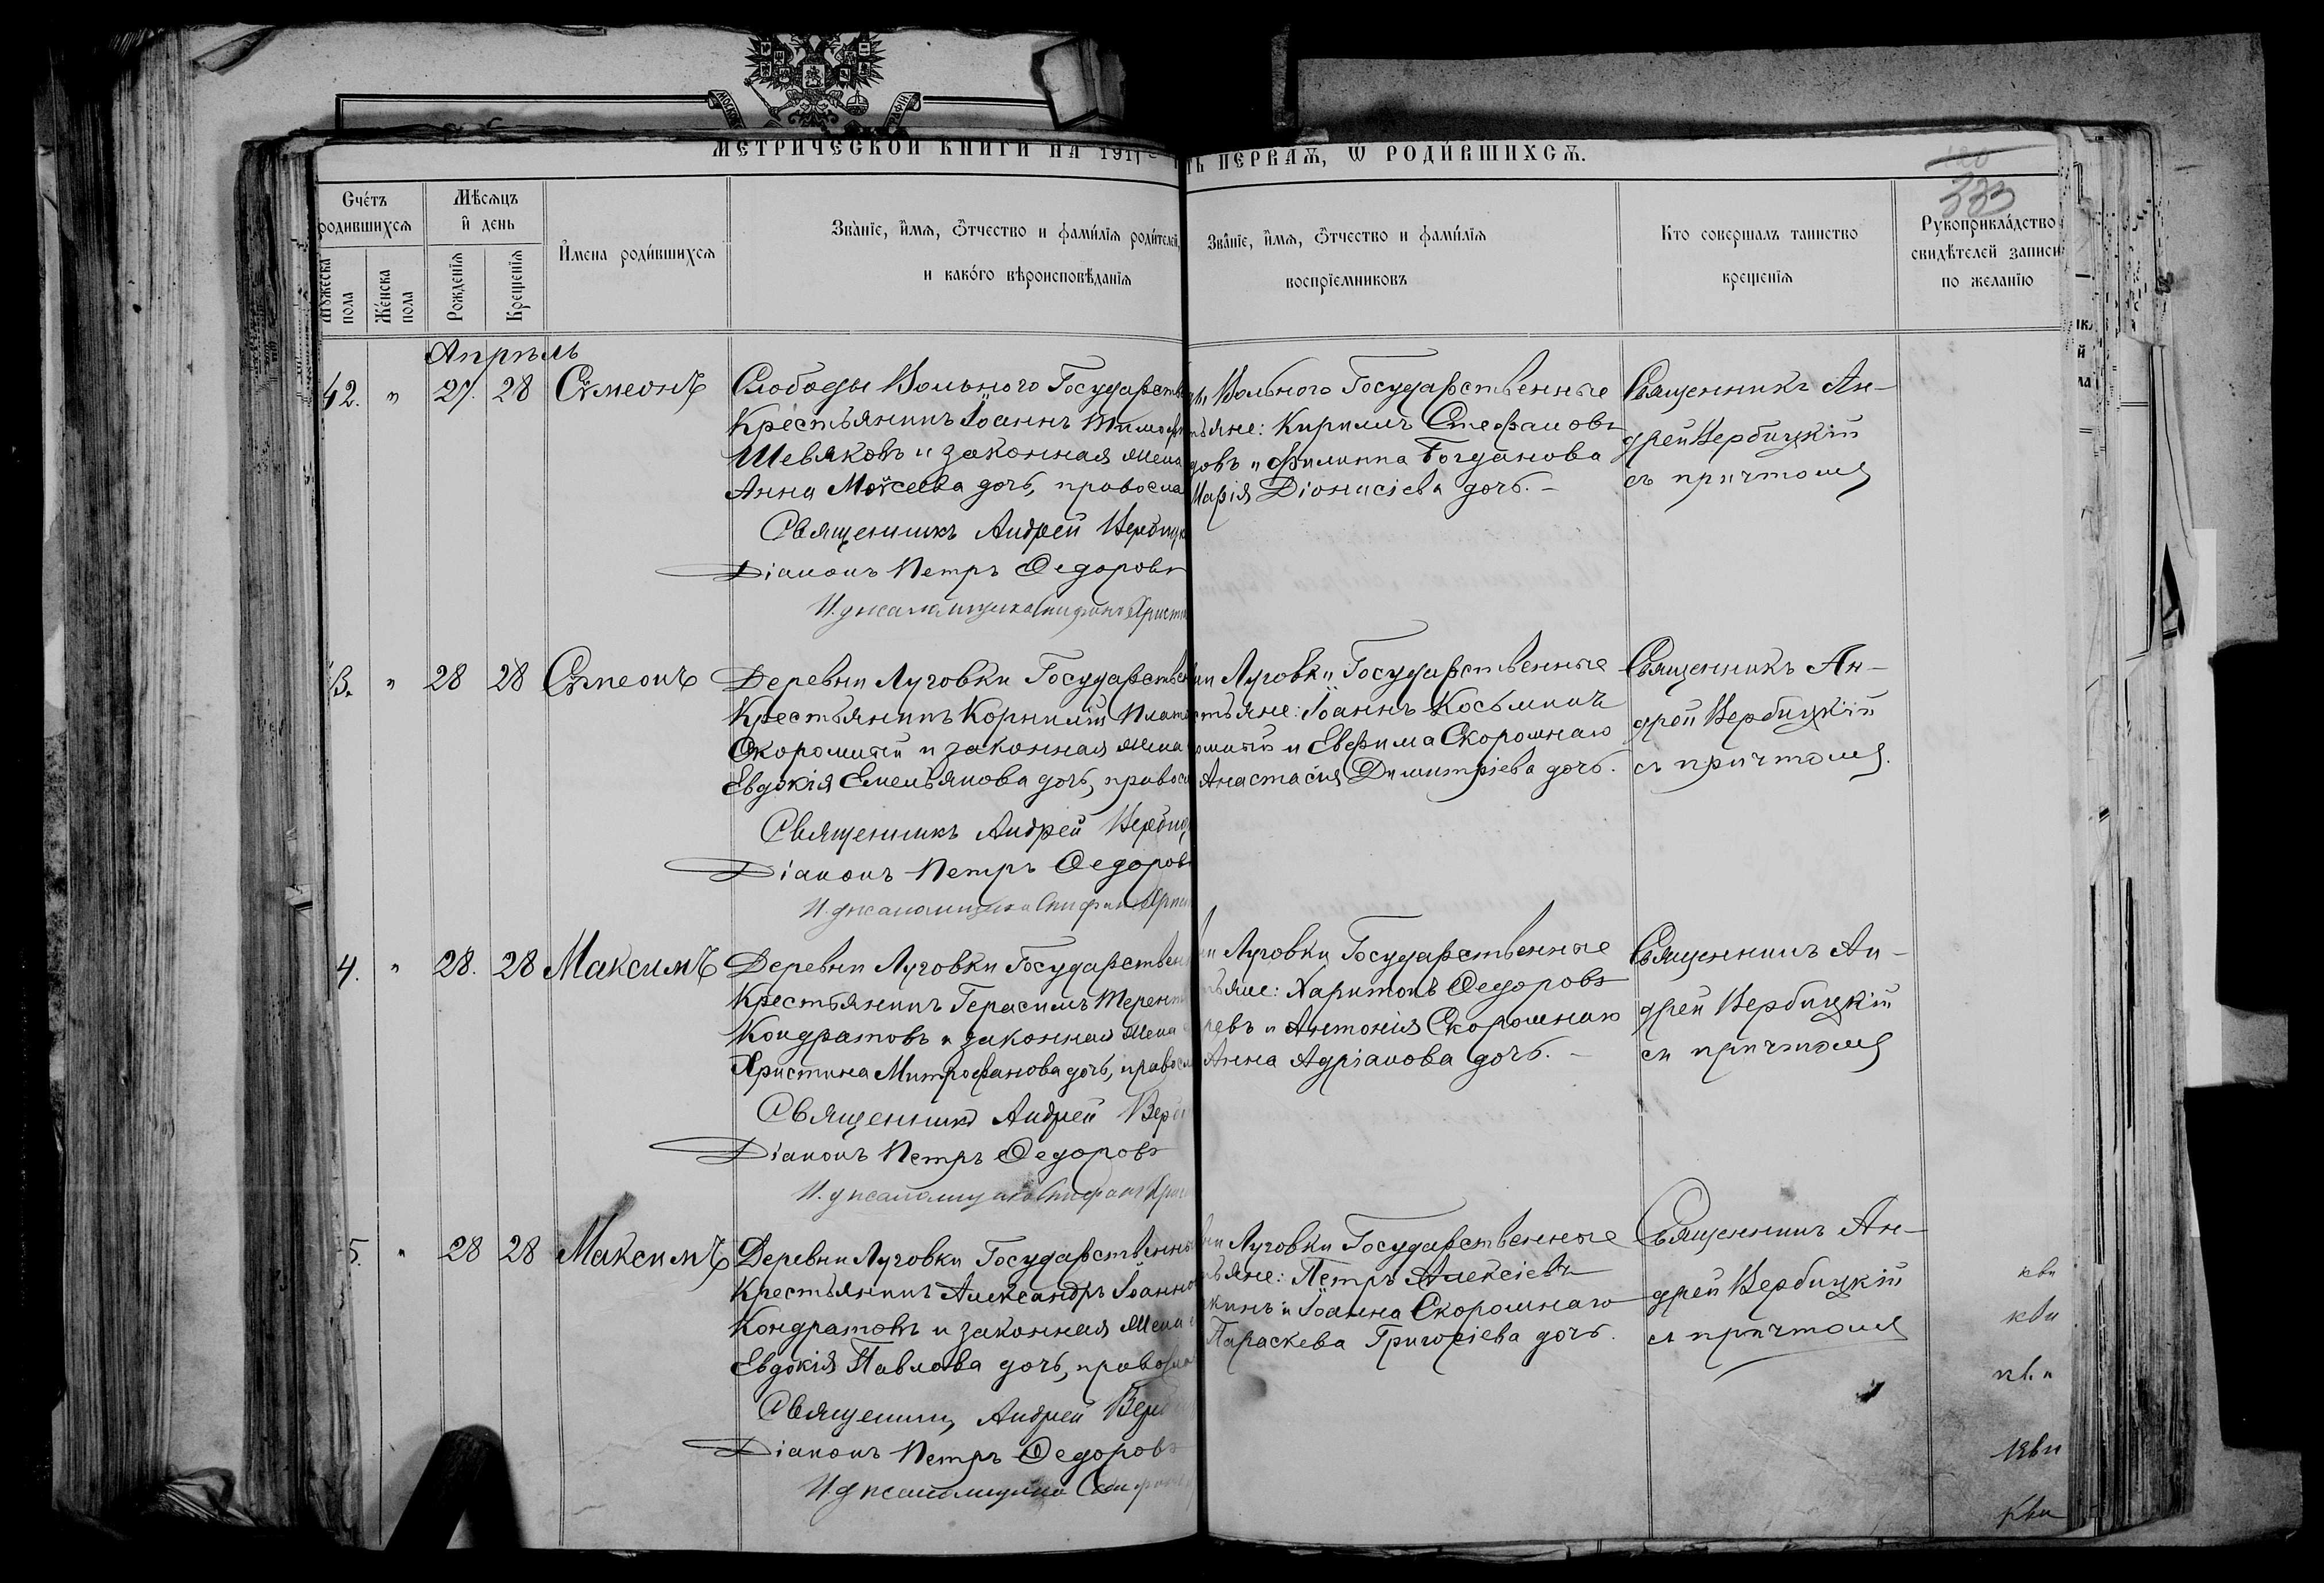 МЕТРИЧЕСКОЙ КНИГИ НА 1911
ПЕРВАѦ, Ѡ РОДИ́ВШИХСѦ.
Сче́тъ родившихсѧ
Мѣсѧцъ и҆ день
И҆мена роди́вшихсѧ
Зва́нїе, и҆мѧ, ѻ҆́тчество и фами́лїѧ роди́телей,
и како́го вѣроисповѣ́данїѧ
Зва́нїе, и҆мѧ, ѻ҆́тчество и фами́лїѧ
воспрїемниковъ
Кто совершалъ таинство
крещенїѧ
Рукоприкла́дство
свидѣтелей записи
по желанїю
Мужеска пола
Же́нска пола
Рожденїѧ
Крещенїѧ
Апрѣль
42. " 27. 28 Сѵмеонъ Слободы Вольнаго Государств
Крестьянинъ Іоаннъ Тимоф
Шевяковъ и законная жена
Анна Моѵсеева дочь, правосла
Священникъ Андрей Вербицк
Діаконъ Петръ Ѳедоровъ
И. д. псаломщика
Вольнаго Государственные
яне: Кириллъ Стефановъ
довъ и Филиппа Богданова
Марія Діонисіева дочь. –
Священникъ Ан-
дрей Вербицкій
съ причтомъ
3. " 28 28 Сѵмеонъ Деревни Луговки Государствен
Крестьянинъ Корнилій Плато
Скоромный и законная жена
Евдокія Емельянова дочь, правосл
Священникъ Андрей Вербиц
Діаконъ Петръ Ѳедоровъ
И. д. псаломщика
Луговки Государственные
стьяне: Іоаннъ Косьминъ
омный и Евфима Скоромнаго
Анастасія Димитріева дочь.
Священникъ Ан-
дрей Вербицкій
съ причтомъ.
4. " 28. 28 Максимъ Деревни Луговки Государствен
Крестьянинъ Герасимъ Терент
Кондратовъ и законная жена
Христина Митрофанова дочь, правосл
Священникъ Андрей Верб
Діаконъ Петръ Ѳедоровъ
И. д. псаломщика
Луговки Государственные
яне: Харитонъ Ѳедоровъ
ревъ и Антонія Скоромнаго
Анна Адріанова дочь. –
Священникъ Ан-
дрей Вербицкій
съ причтомъ
5. " 28 28 Максимъ Деревни Луговки Государственны
Крестьянинъ Александръ Іоанно
Кондратовъ и законная жена
Евдокія Павлова дочь, правосла
Священникъ Андрей Верб
Діаконъ Петръ Ѳедоровъ
И. д. псаломщика
Луговки Государственные
яне: Петръ Алексіевъ
кинъ и Іоанна Скоромнаго
Параскева Григоріева дочь.
Священникъ Ан-
дрей Вербицкій
съ причтомъ